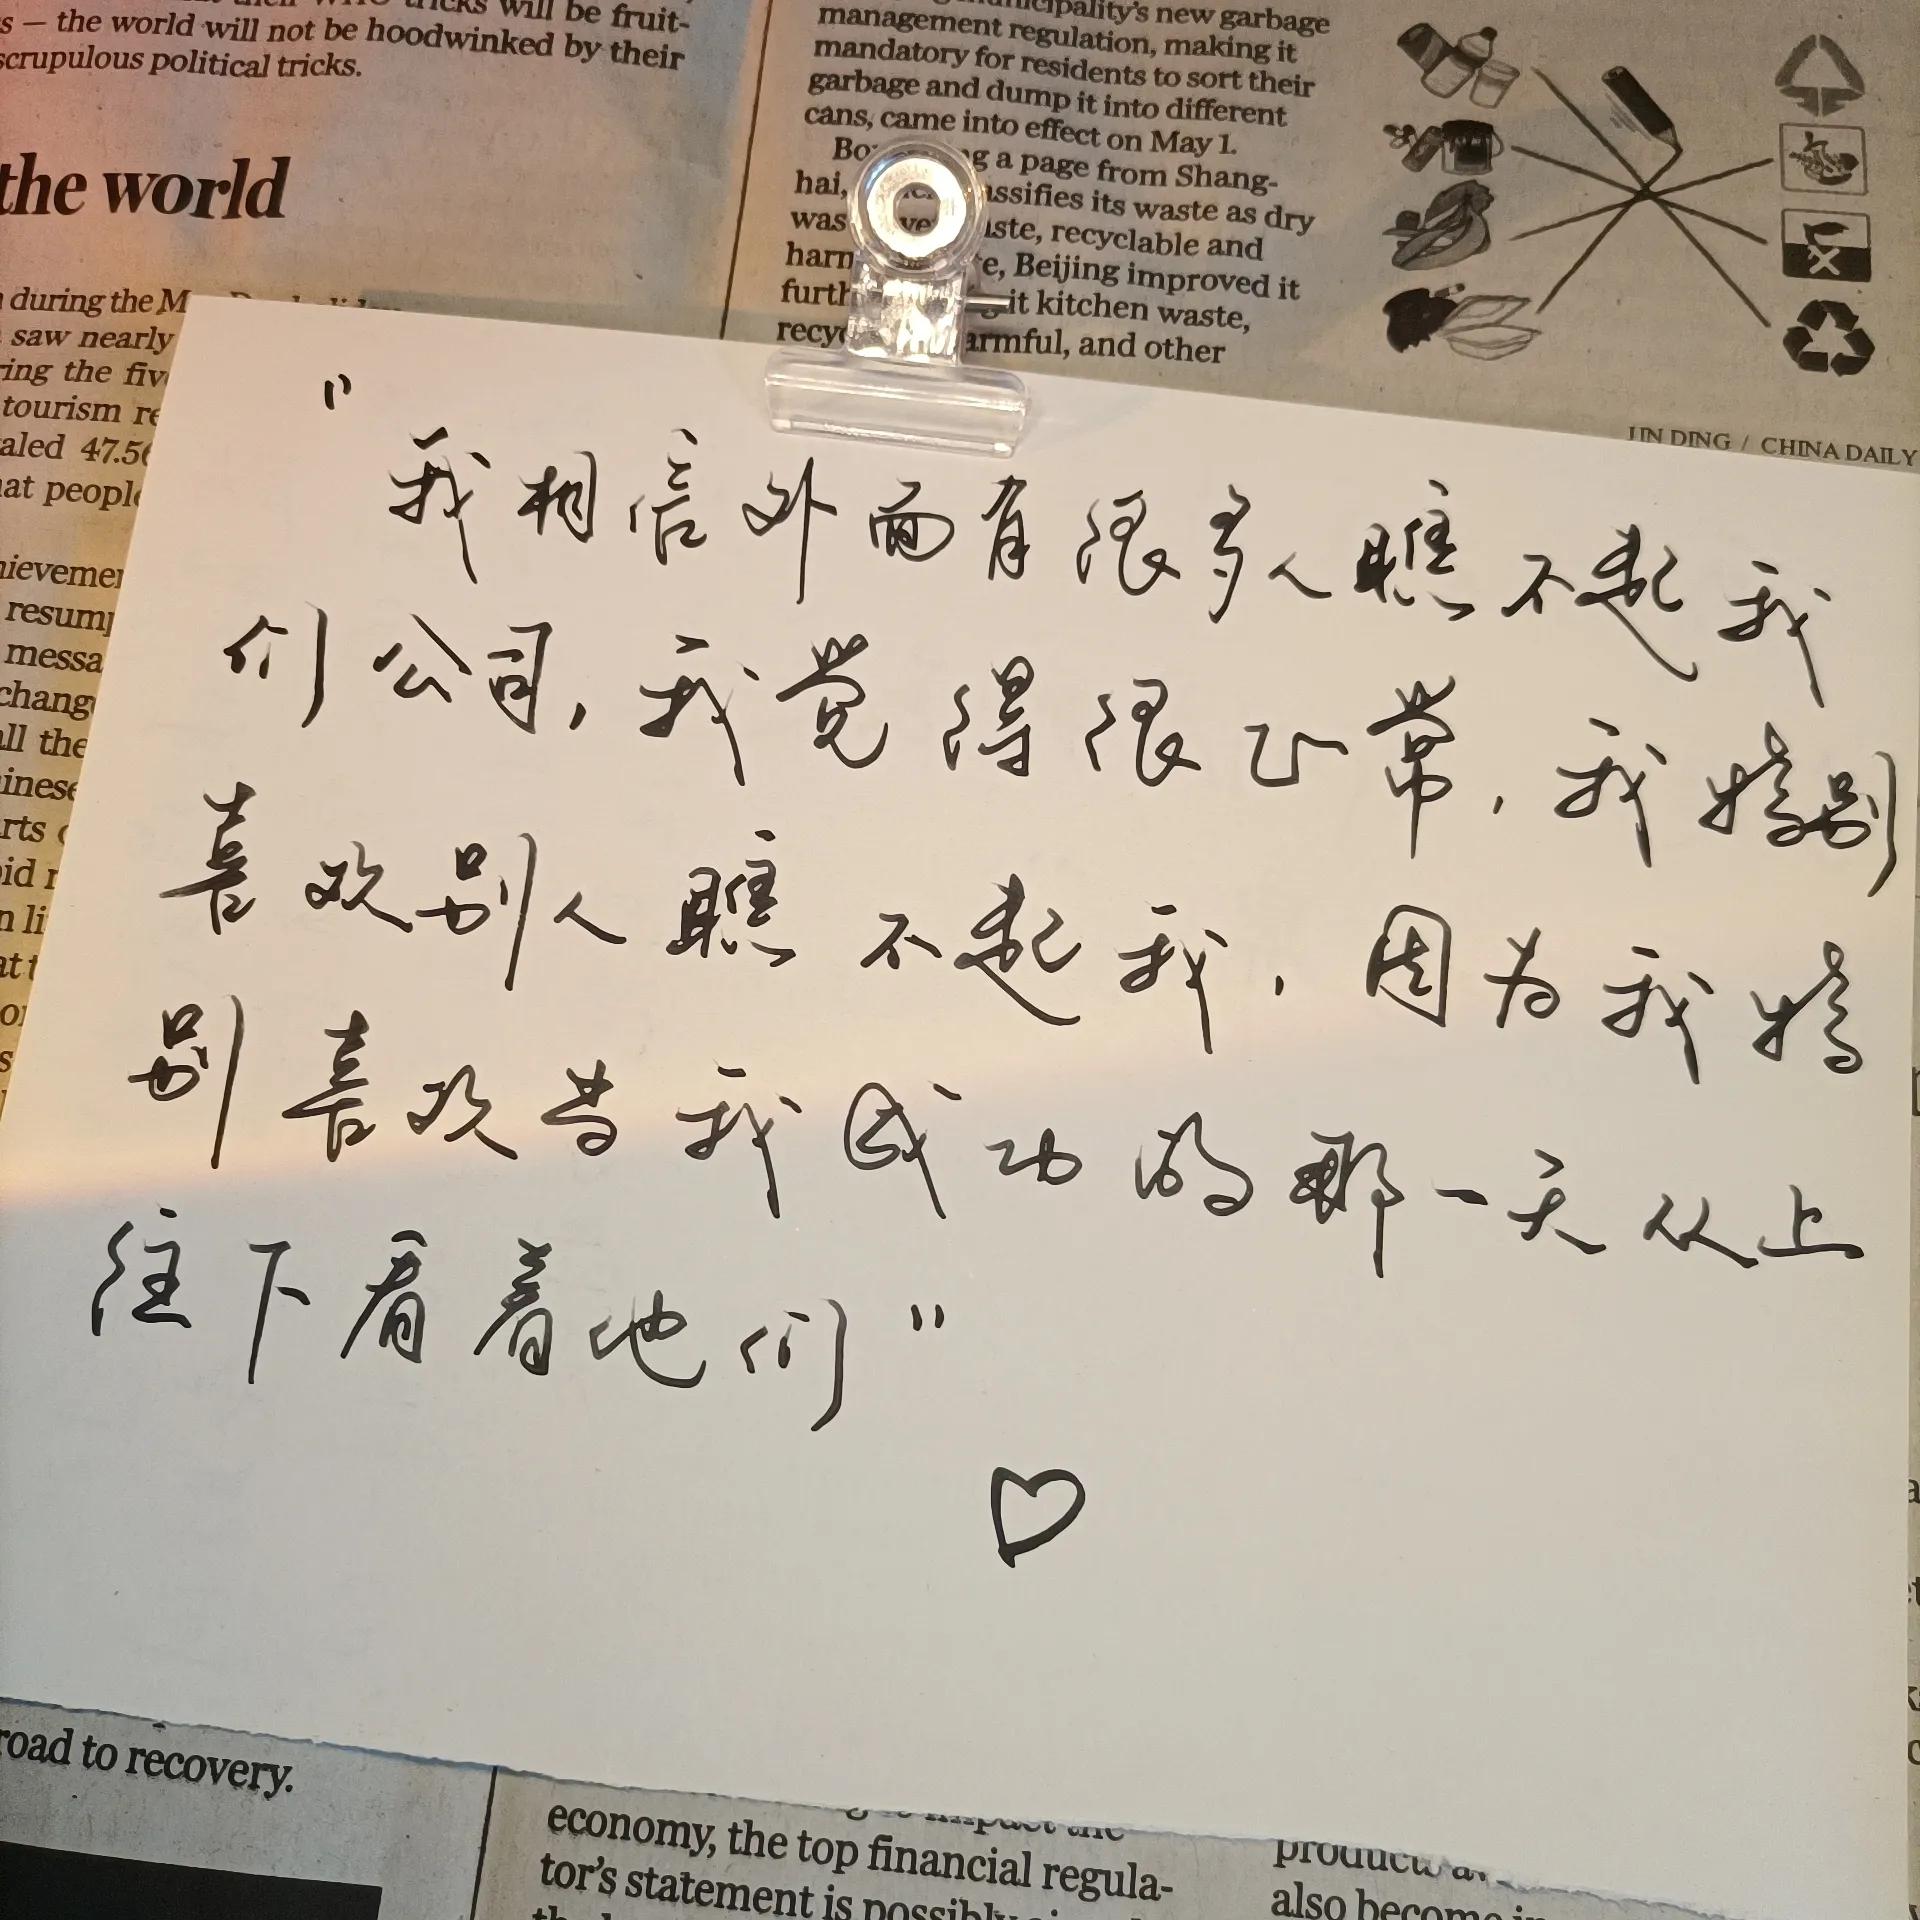 tricks will be fruit-
s — the world will not be hoodwinked by their
scrupulous political tricks.
the world
during the M
saw nearly
ring the fiv
tourism re
aled 47.56
at people
hievemen
resump
messa
chang
all the
inese
rts
oid r
n li
at t
road to recovery.
municipality's new garbage
management regulation, making it
mandatory for residents to sort their
garbage and dump it into different
cans, came into effect on May 1.
Bo g a page from Shang-
hai, assifies its waste as dry
was ve aste, recyclable and
harm e, Beijing improved it
furth it kitchen waste,
recy armful, and other
JIN DING / CHINA DAILY
"我相信外面有很多人瞧不起我
们公司,我觉得很正常,我特别
喜欢别人瞧不起我,因为我特
别喜欢当我成功的那一天从上
往下看着他们"
economy, the top financial regula-
tor's statement is possibly
also become